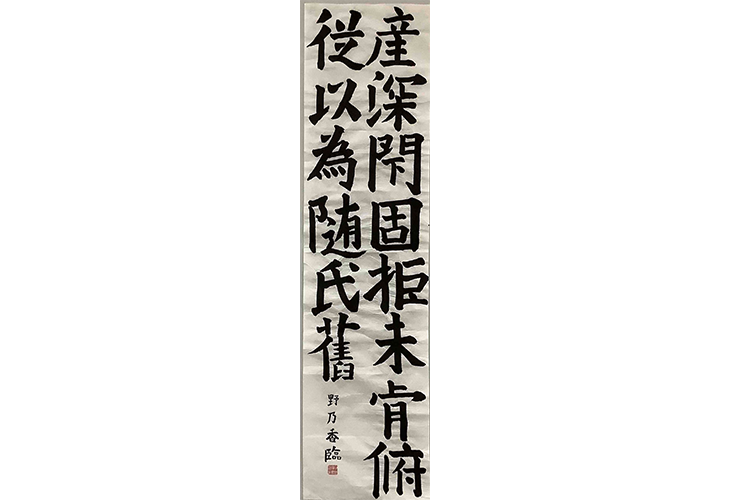 産深閇固拒未肯俯
従以為随氏舊
野乃香臨